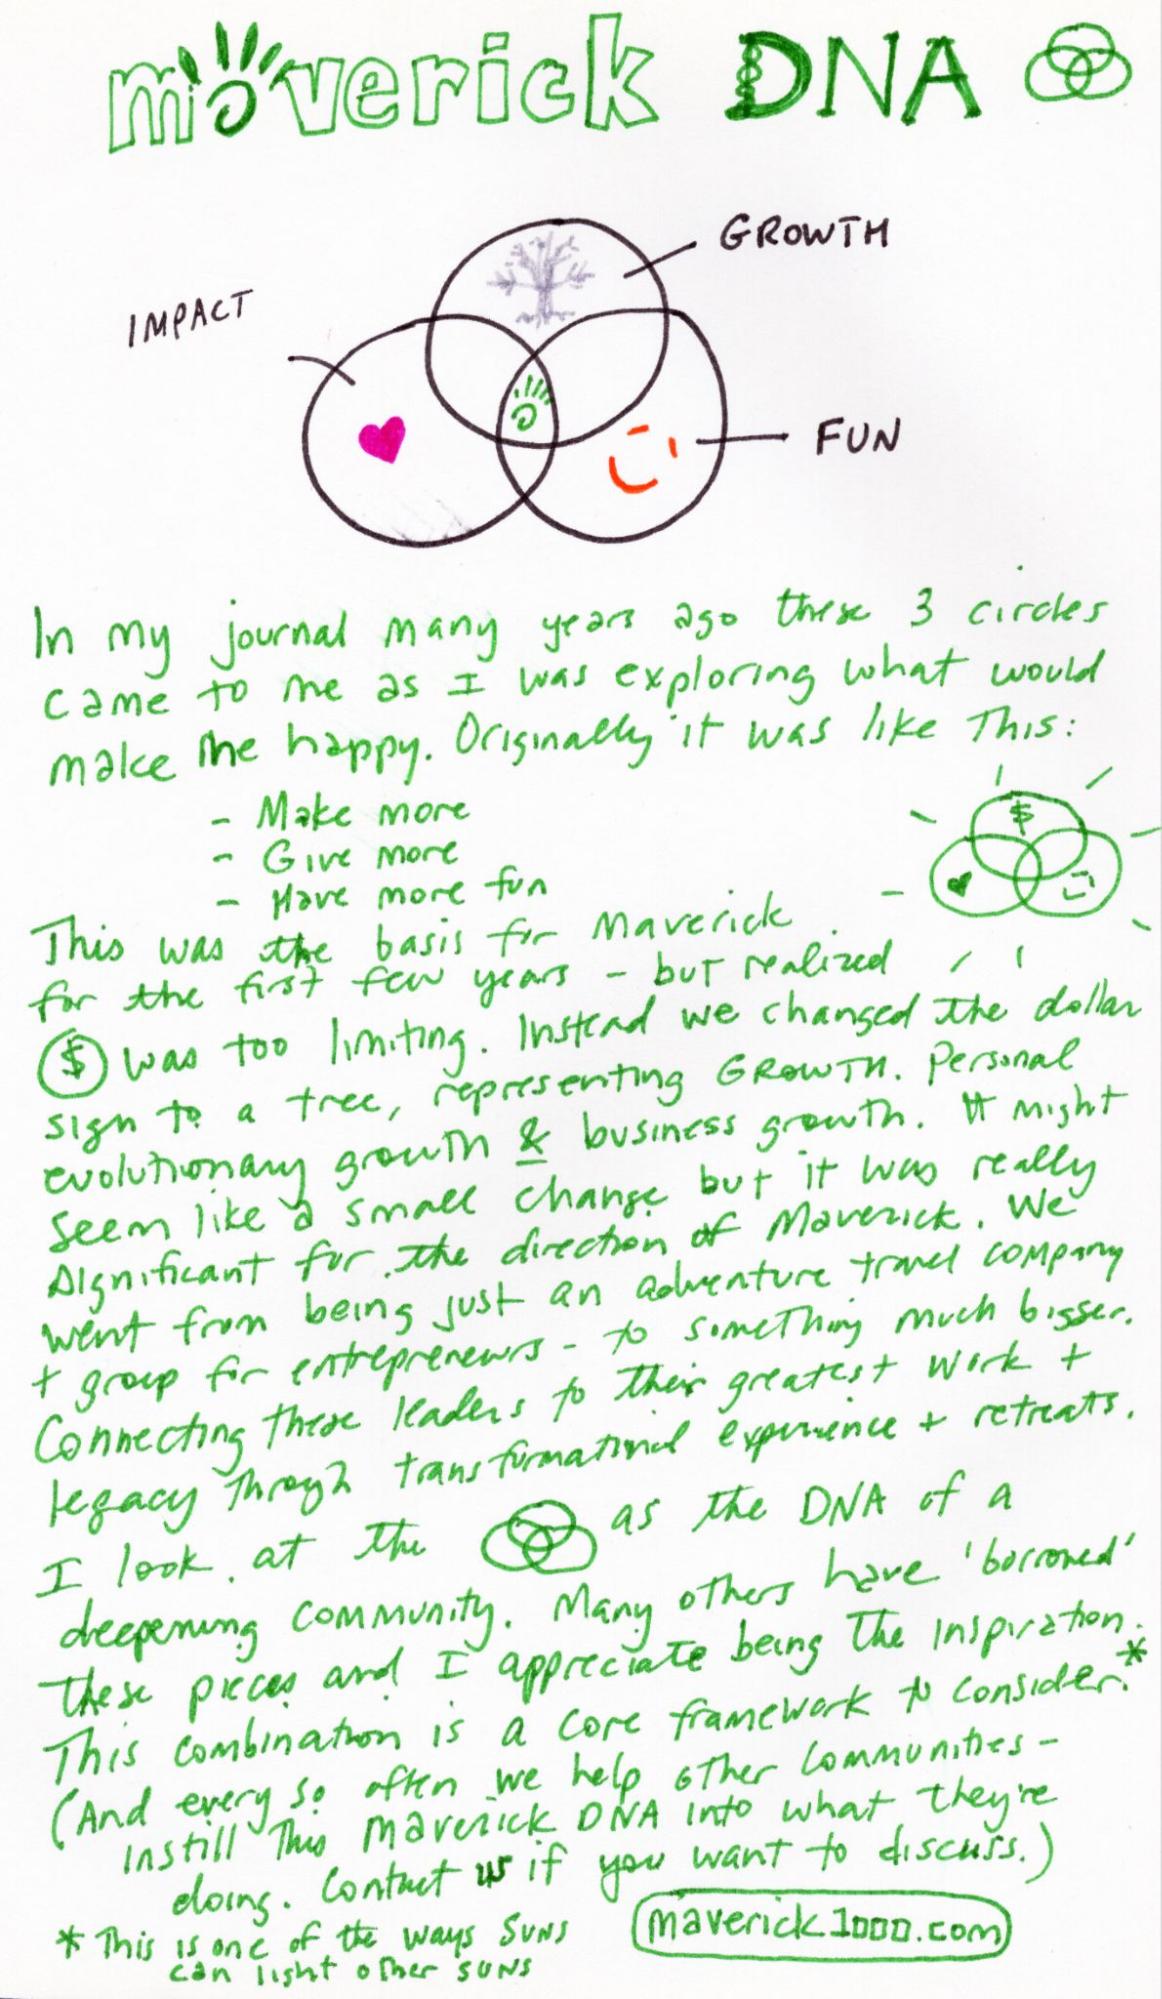 maverick DNA
GROWTH
IMPACT
FUN
In my journal many years ago these 3 circles
came to me as I was exploring what would
make me happy. Originally it was like This:
- Make more
- Give more
- Have more fun
$
This was the basis for Maverick
for the first few years - but realized
$ was too limiting. Instead we changed the dollar
sign to a tree, representing GROWTH. Personal
evolutionary growth & business growth. It might
seem like a small change but it was really
significant for the direction of Maverick. We
went from being just an adventure travel company
+ group for entrepreneurs - to something much bigger.
Connecting these leaders to their greatest work +
legacy through transformational experience + retreats.
I look at the as the DNA of a
deepening community. Many others have 'borrowed'
these pieces and I appreciate being the inspiration.
This combination is a core framework to consider.*
(And every so often we help other communities -
instill this Maverick DNA into what they're
doing. Contact us if you want to discuss.)
* This is one of the ways SUNS
can light other SUNS
maverick1000.com